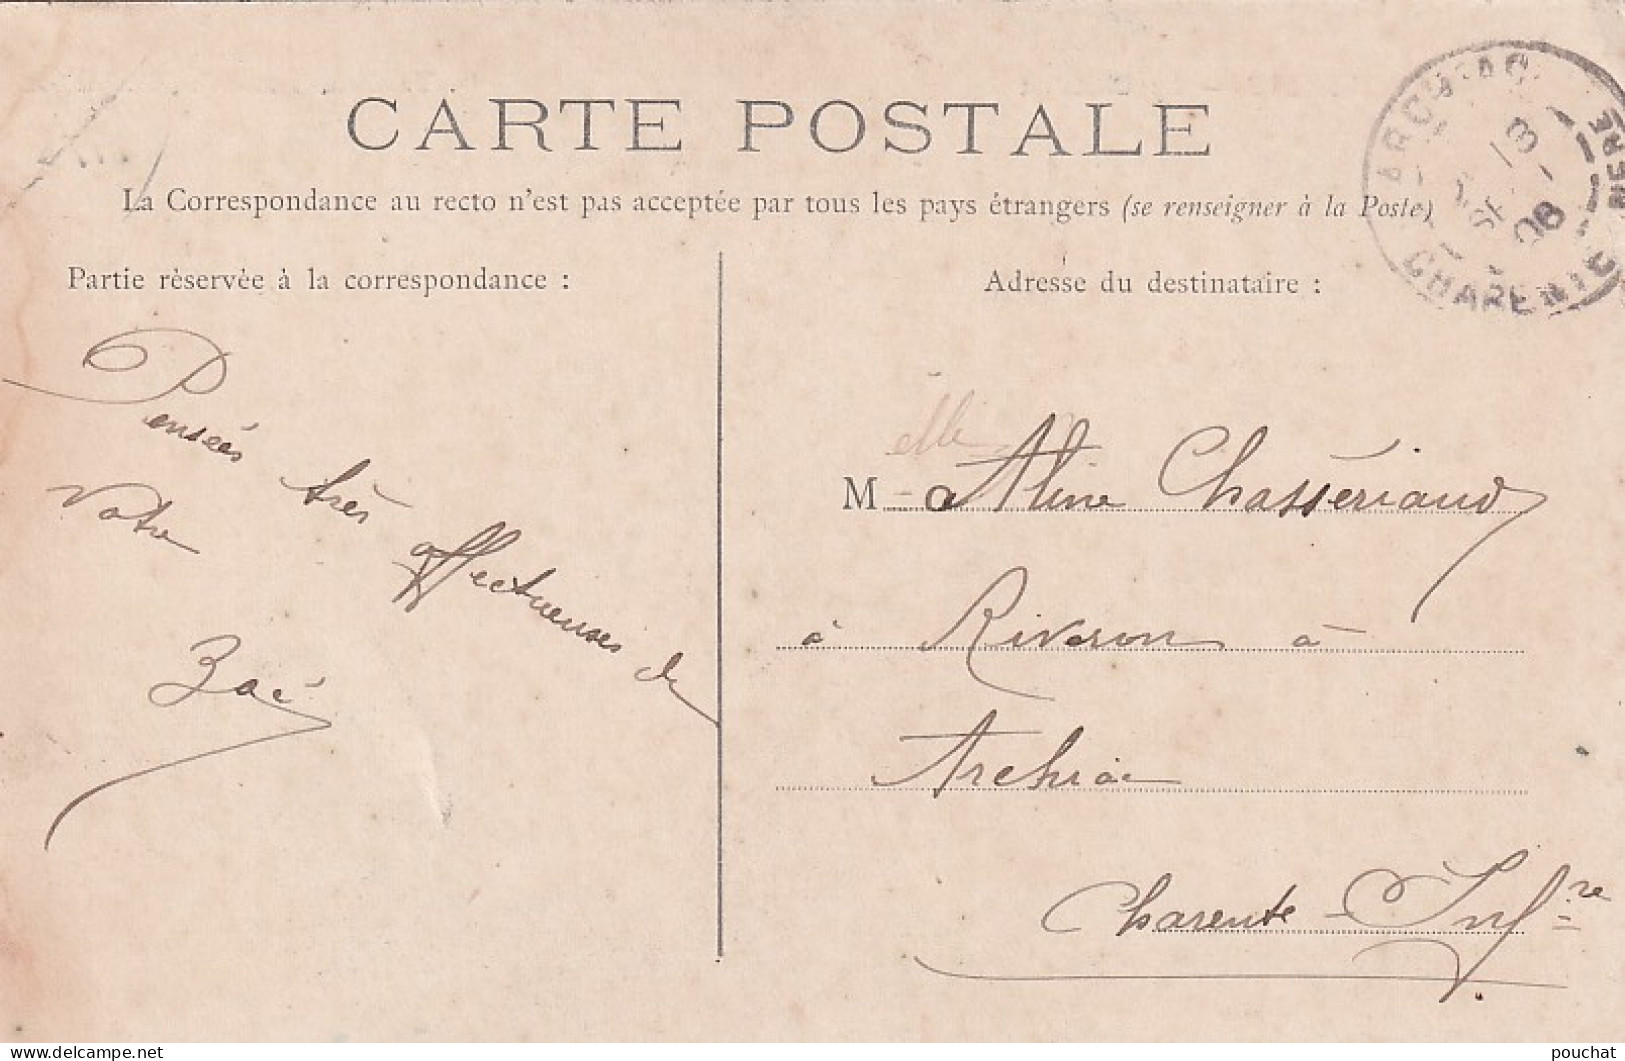 CARTE POSTALE
La Correspondance au recto n'est pas acceptée par tous les pays étrangers (se renseigner à la Poste)
Partie réservée à la correspondance :
Pensées très affectueuses de
Votre
Zoé
Adresse du destinataire :
Melle Aline Chassériaud
à Riveron à
Archiac
Charente Infre
ARCHIAC
18
SEPT
08
CHARENTE INFERE
pouchat